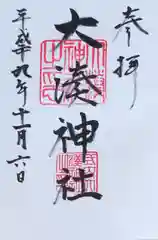 奉拝
大湊神社
平成十九年十一月六日